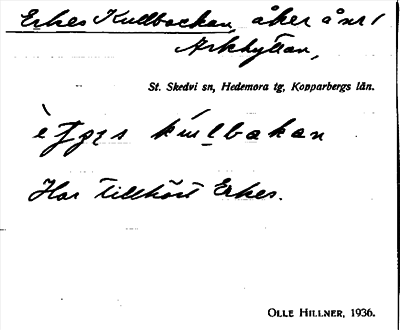 Erkes Kullbackan, åker å nr 1
Arkhyttan,
St. Skedvi sn, Hedemora tg, Kopparbergs län.
kulbakan
Har tillhört Erkes.
OLLE HILLNER, 1936.